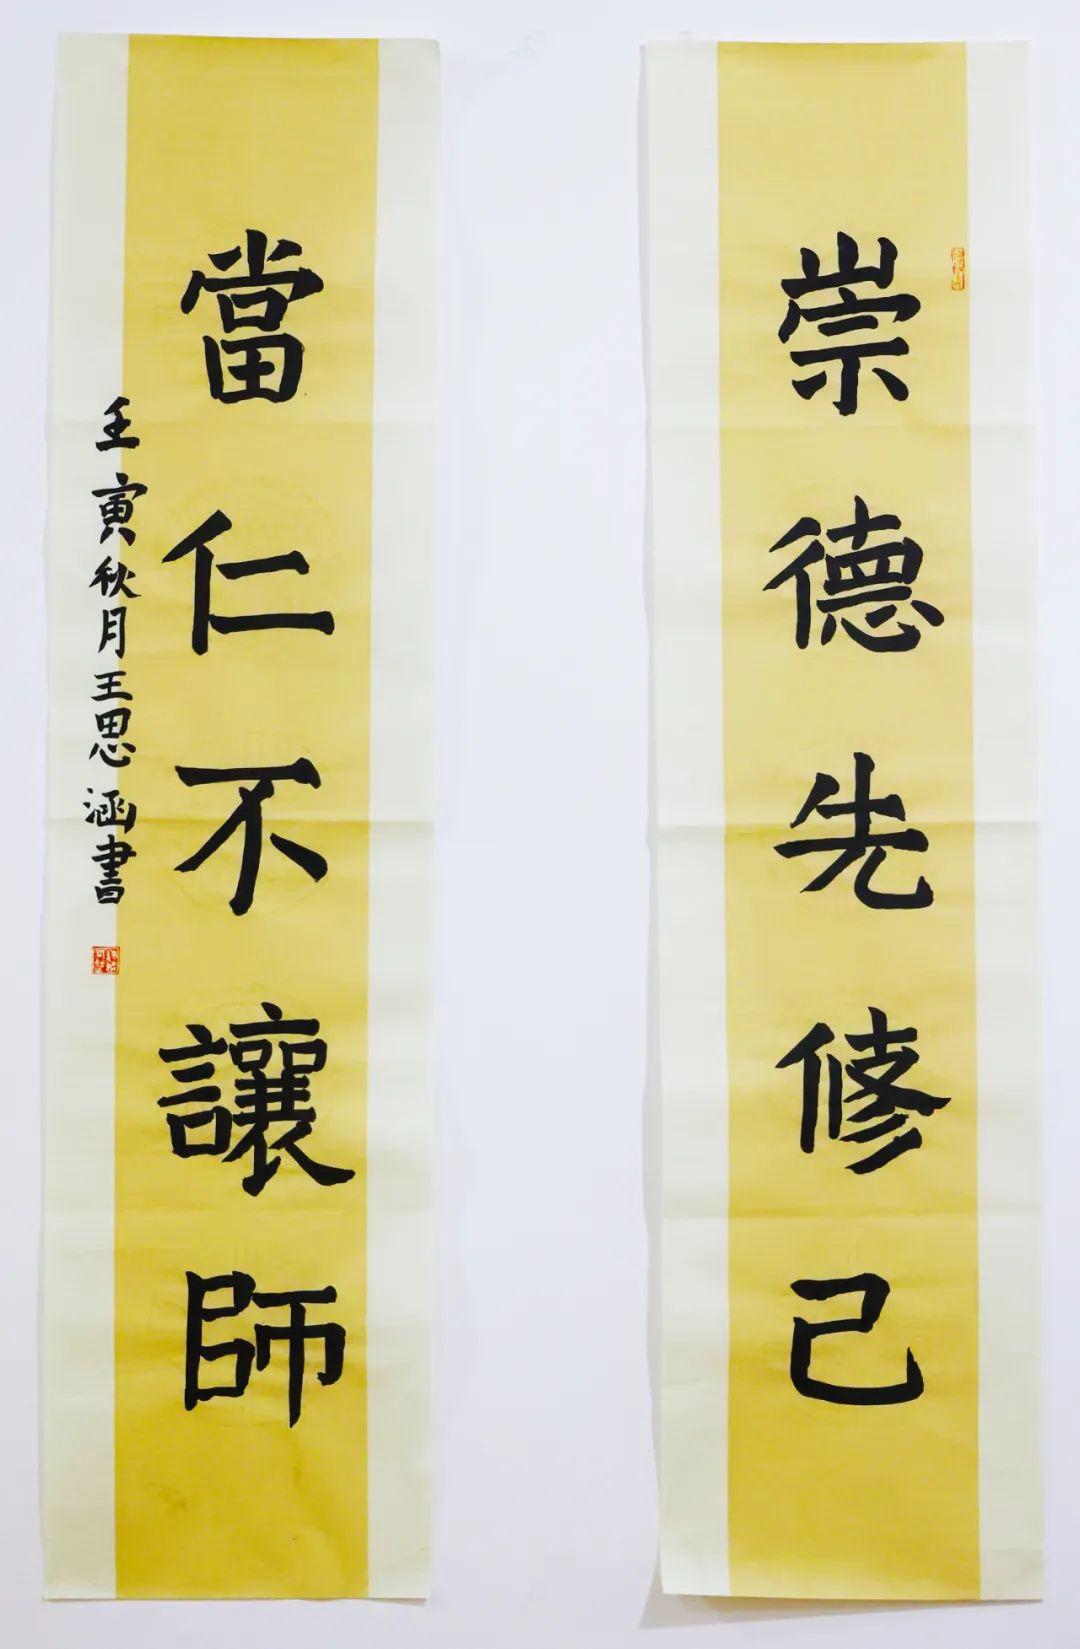 崇德先修己
當仁不讓師
壬寅秋月王思涵書